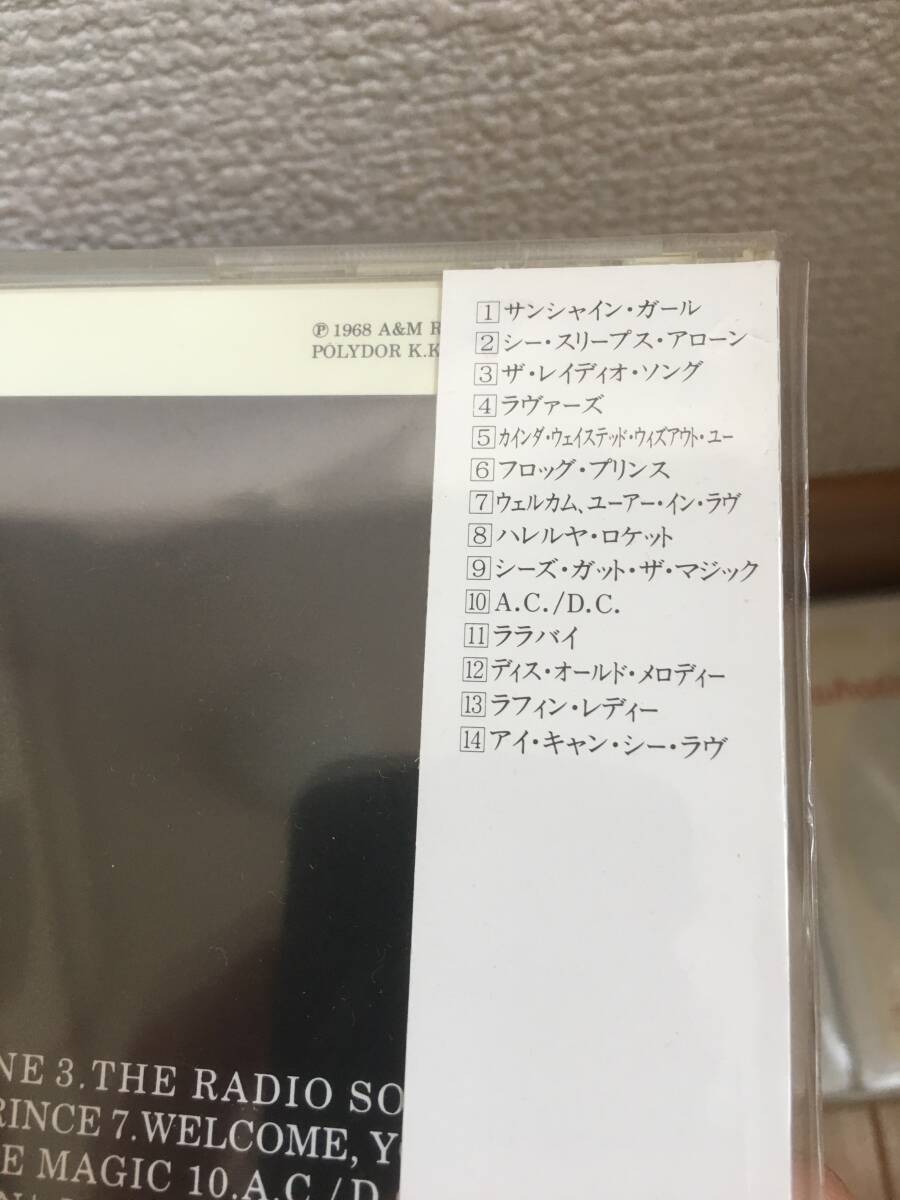 ℗ 1968 A&M R
POLYDOR K.K
1 サンシャイン・ガール
2 シー・スリープス・アローン
3 ザ・レイディオ・ソング
4 ラヴァーズ
5 カインダ・ウェイステッド・ウィズアウト・ユー
6 フロッグ・プリンス
7 ウェルカム、ユーアー・イン・ラヴ
8 ハレルヤ・ロケット
9 シーズ・ガット・ザ・マジック
10 A.C./D.C.
11 ララバイ
12 ディス・オールド・メロディー
13 ラフィン・レディー
14 アイ・キャン・シー・ラヴ
NE 3.THE RADIO SO
RINCE 7.WELCOME, Y
E MAGIC 10.A.C./D